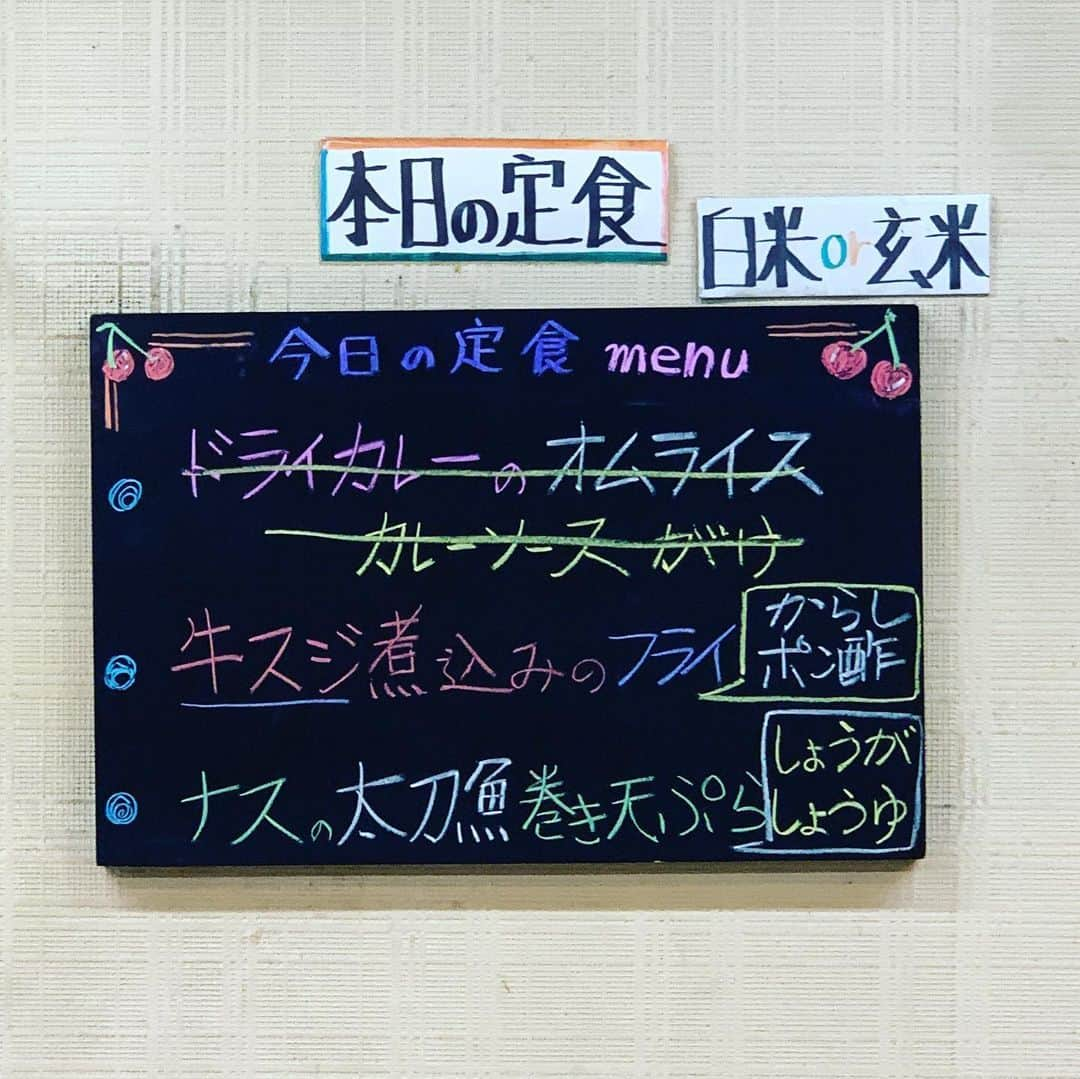 本日の定食
白米or玄米
今日の定食 menu
ドライカレーのオムライス
カレーソースがけ
牛スジ煮込みのフライ
からし
ポン酢
ナスの太刀魚巻き天ぷら
しょうが
しょうゆ